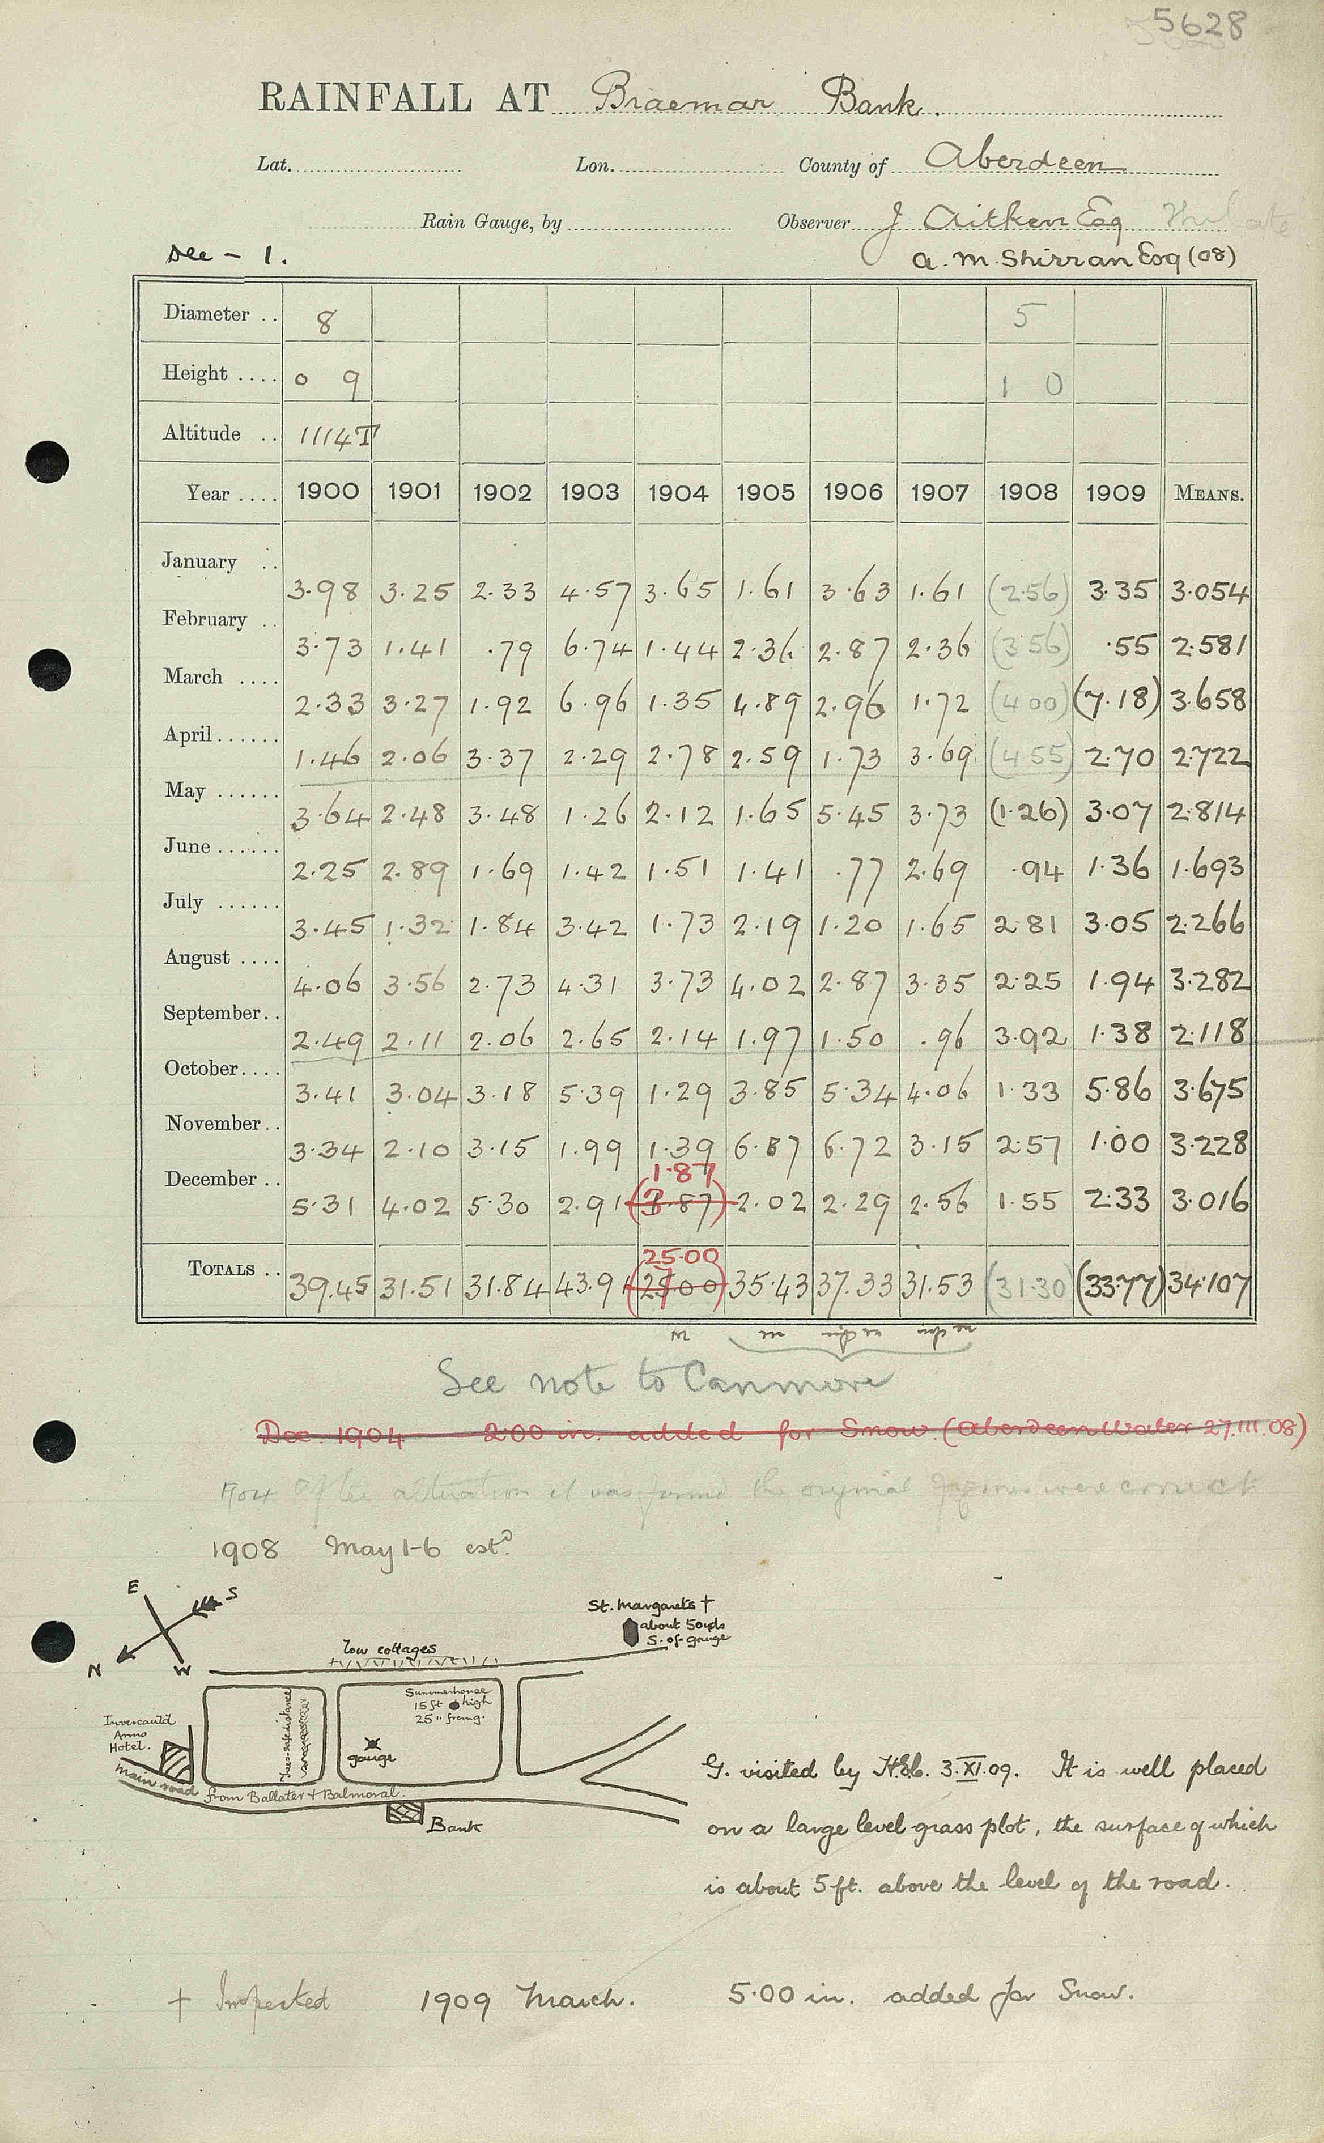 5628
RAINFALL AT Braemar Bank.
Lat. Lon. County of Aberdeen
Rain Gauge, by Observer J Aitken Esq
Dec - 1. A. M. Shirran Esq (08)
Diameter .. 8 5
Height .... 0 9 1 0
Altitude .. 1114T
Year .... 1900 1901 1902 1903 1904 1905 1906 1907 1908 1909 MEANS.
January .. 3.98 3.25 2.33 4.57 3.65 1.61 3.63 1.61 (2.56) 3.35 3.054
February .. 3.73 1.41 .79 6.74 1.44 2.36 2.87 2.36 (3.56) .55 2.581
March .... 2.33 3.27 1.92 6.96 1.35 4.89 2.96 1.72 (4.00) (7.18) 3.658
April...... 1.46 2.06 3.37 2.29 2.78 2.59 1.73 3.69 (4.55) 2.70 2.722
May ...... 3.64 2.48 3.48 1.26 2.12 1.65 5.45 3.73 (1.26) 3.07 2.814
June ...... 2.25 2.89 1.69 1.42 1.51 1.41 .77 2.69 .94 1.36 1.693
July ...... 3.45 1.32 1.84 3.42 1.73 2.19 1.20 1.65 2.81 3.05 2.266
August .... 4.06 3.56 2.73 4.31 3.73 4.02 2.87 3.35 2.25 1.94 3.282
September.. 2.49 2.11 2.06 2.65 2.14 1.97 1.50 .96 3.92 1.38 2.118
October.... 3.41 3.04 3.18 5.39 1.29 3.85 5.34 4.06 1.33 5.86 3.675
November.. 3.34 2.10 3.15 1.99 1.39 6.87 6.72 3.15 2.57 1.00 3.228
1.87
December .. 5.31 4.02 5.30 2.91 (3.87) 2.02 2.29 2.56 1.55 2.33 3.016
25.00
TOTALS .. 39.45 31.51 31.84 43.91 (27.00) 35.43 37.33 31.53 (31.30) (33.77) 34.107
See note to Canmore
Dec. 1904 2.00 in. added for Snow. (Aberdeen Water 27.III.08)
1904 After it was found the original figures were correct
1908 May 1-6 estd.
E S
N W
St. Margarets †
about 50yds
S. of gauge
low cottages
Summerhouse
15ft high
25" from g.
Trees-safe distance
gauge
Invercauld
Arms
Hotel.
main road from Ballater & Balmoral.
Bank
G. visited by 3.XI.09. It is well placed
on a large level grass plot, the surface of which
is about 5ft. above the level of the road.
† Inspected 1909 March. 5.00 in. added for Snow.